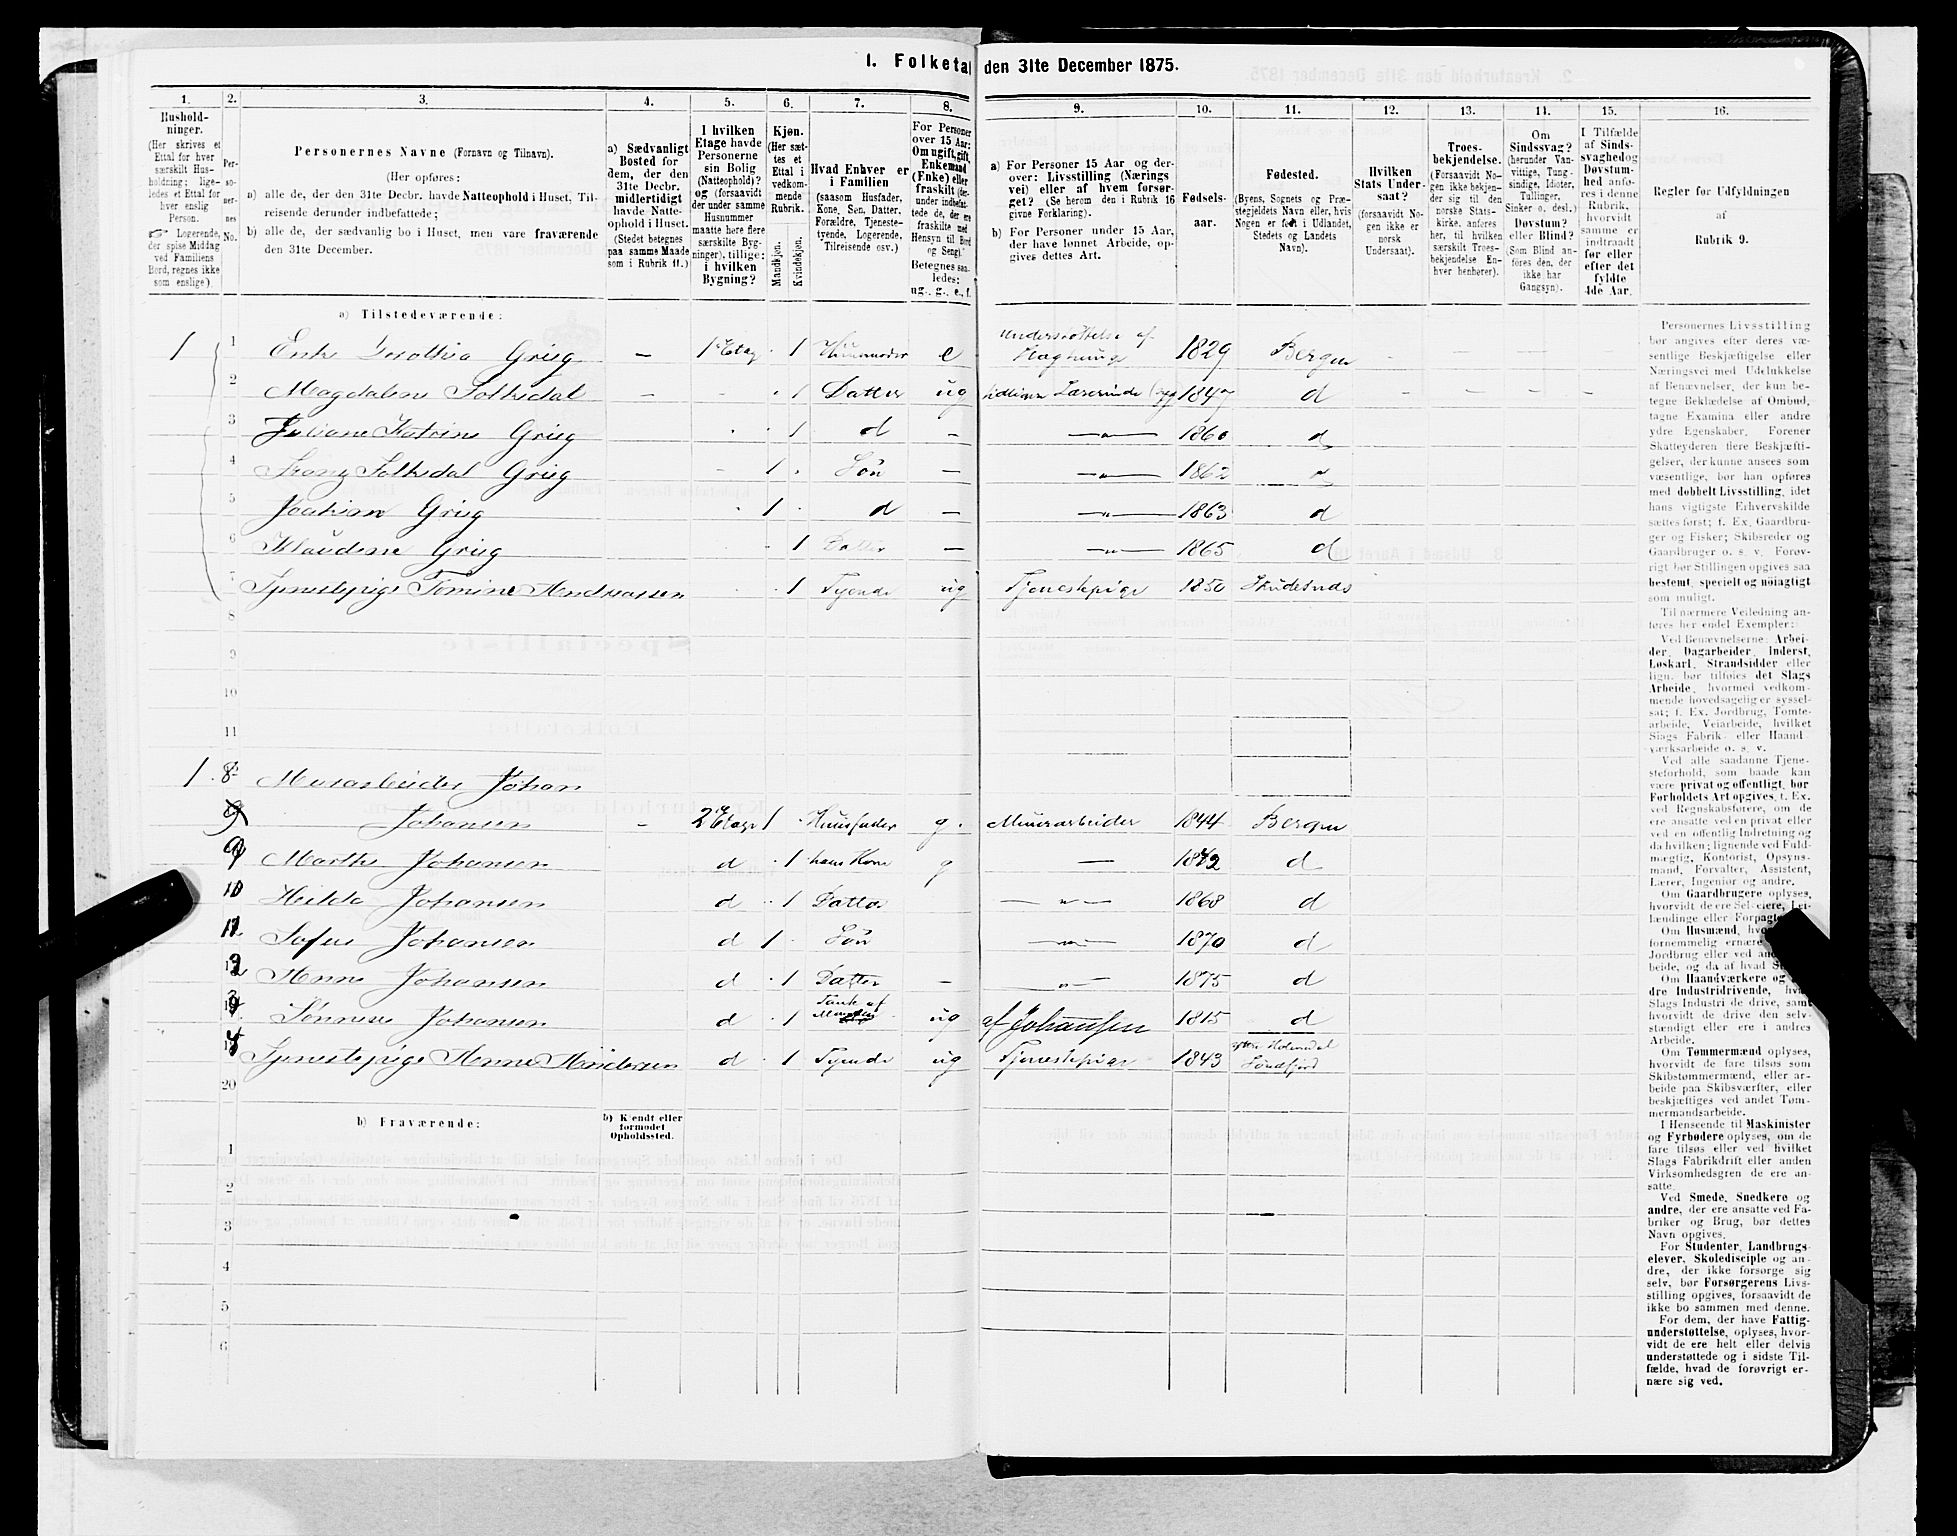 1. Folketal den 31te December 1875.
1. 2. 3. 4. 5. 6. 7. 8. 9. 10. 11. 12. 13. 14. 15. 16.
Hushold-
ninger.
(Her skrives et
Ettal for hver
særskilt Hus-
holdning; lige-
ledes et Ettal for
hver enslig
Person.
☞ Logerende,
der spise Middag
ved Familiens
Bord, regnes ikke
som enslige).
Per-
so-
ner-
nes
No.
Personernes Navne (Fornavn og Tilnavn).
(Her opføres:
a) alle de, der den 31te Decbr. havde Natteophold i Huset, Til-
reisende derunder indbefattede;
b) alle de, der sædvanlig bo i Huset, men vare fraværende
den 31te December.
a) Sædvanligt
Bosted for
dem, der den
31te Decbr.
midlertidigt
havde Natte-
ophold i Huset.
(Stedet betegnes
paa samme Maade
som i Rubrik 11.)
I hvilken
Etage havde
Personerne
sin Bolig
(Natteophold)?
og (forsaavidt
der under samme
Husnummer
maatte høre flere
særskilte Byg-
ninger), tillige:
i hvilken
Bygning?
Kjøn.
(Her sæt-
tes et
Ettal i
vedkom-
mende
Rubrik.
Mandkjøn.
Kvindekjøn.
Hvad Enhver er
i Familien
(saasom Husfader,
Kone, Søn, Datter,
Forældre, Tjeneste-
tyende, Logerende,
Tilreisende osv.)
For Personer
over 15 Aar:
Om ugift, gift,
Enkemand
(Enke) eller
fraskilt (der-
under indbefat-
tede de, der ere
fraskilte med
Hensyn til Bord
og Seng).
Betegnes saa-
ledes:
ug., g., e., f.
a) For Personer 15 Aar og der-
over: Livsstilling (Nærings
vei) eller af hvem forsør-
get? (Se herom den i Rubrik 16
givne Forklaring).
b) For Personer under 15 Aar,
der have lønnet Arbeide, op-
gives dettes Art.
Fødsels-
aar.
Fødested.
(Byens, Sognets og Præ-
stegjeldets Navn eller, hvis
Nogen er født i Udlandet,
Stedets og Landets
Navn).
Hvilken
Stats Under-
saat?
(forsaavidt No-
gen ikke er
norsk
Undersaat).
Troes-
bekjendelse.
(Forsaavidt No-
gen ikke bekjen-
der sig til den
norske Stats-
kirke, anføres
her, til hvilken
særskilt Troes-
bekjendelse En-
hver henhører).
Om
Sindssvag?
(herunder Van-
vittige, Tung-
sindige, Idioter,
Tullinger,
Sinker o. desl.)
Døvstum?
eller Blind?
(Som Blind an-
føres den, der
ikke har
Gangsyn).
I Tilfælde
af Sinds-
svaghedog
Døvstum-
hed anfø-
res i denne
Rubrik,
hvorvidt
samme er
indtraadt
før eller
efter det
fyldte
4de Aar.
Regler for Udfyldningen
af
Rubrik 9.
a) Tilstedeværende:
1 1 Enke Dorothea Grieg – 1 Etag 1 Huusmoder e understøttelse af 1829 Bergen – – – –
2 Magdalene – – 1 Datter ug Lærerinde 1847 d – – –
3 Juliane Katrine Grieg 1 d – –„– 1860 d
4 Franz Grieg – 1 Søn – –„– 1862 d
5 Joakim Grieg 1 d – –„– 1863 d
6 Klaudene Grieg 1 Datter – –„– 1865 d
7 Tjenestepige Tomine Andreassen 1 Tyende ug Tjenestepige 1850 Skudesnæs
8
9
10
11
1 8 Murarbeider Johan
Johansen – 2 Etage 1 Huusfader g. Muurarbeider 1844 Bergen
9 Marthe Johansen d 1 hans Kone g – 1842 d
10 Hilda Johansen d 1 Datter –„– 1868 d
11 Sofus Johansen d 1 Søn –„– 1870 d
12 Anne Johansen d 1 Datter – –„– 1875 d
Johansen d 1 Tante af ug af Johansen 1815 d
Tjenestepige Anne Andersen d 1 Tyende ug Tjenestepige 1843 Holmedal
Søndfjord
20
b) Fraværende:
b) Kjendt eller
formodet
Opholdssted.
1
2
3
4
5
6
Personernes Livsstilling
bør angives efter deres væ-
sentlige Beskjæftigelse eller
Næringsvei med Udelukkelse
af Benævnelser, der kun be-
tegne Beklædelse af Ombud,
tagne Examina eller andre
ydre Egenskaber. Forener
Skatteyderen flere Beskjæfti-
gelser, der kunne ansees som
væsentlige, bør han opføres
med dobbelt Livsstilling, idet
hans vigtigste Erhvervskilde
sættes først; f. Ex. Gaardbru-
ger og Fisker; Skibsreder og
Gaardbruger o. s. v. Forøv-
rigt bør Stillingen opgives saa
bestemt, specielt og nøiagtigt
som muligt.
Til nærmere Veiledning an-
føres her endel Exempler:
Ved Benævnelserne: Arbei-
der, Dagarbeider, Inderst,
Løskarl, Strandsidder eller
lign. bør tilføies det Slags
Arbeide, hvormed vedkom-
mende hovedsagelig er syssel-
sat; f. Ex. Jordbrug, Tomte-
arbeide, Veiarbeide, hvilket
Slags Fabrik- eller Haand-
værksarbeide o. s. v.
Ved alle saadanne Tjene-
steforhold, som baade kan
være privat og offentligt, bør
Forholdets Art opgives, t. Ex.
ved Regnskabsførere, om de
ere ansatte ved en privat eller
ved en offentlig Indretning og
da hvilken; lignende ved Fuld-
mægtig, Kontorist, Opsyns-
mand, Forvalter, Assistent,
Lærer, Ingeniør og andre.
Om Gaardbrugere oplyses,
hvorvidt de ere Selveiere, Lei-
lændinge eller Forpagtere.
Om Husmænd,
fornemmelig ernære
Jordbrug eller ved
beide, og da af hvad
Om Haandværkere og
dre Industridrivende,
Slags Industri de drive, samt
hvorvidt de drive den selv-
stændigt eller ere i andres
Arbeide.
Om Tømmermænd oplyses,
hvorvidt de fare tilsøs som
Skibstømmermænd, eller ar-
beide paa Skibsværfter, eller
beskjæftiges ved andet Tøm-
mermandsarbeide.
I Henseende til Maskinister
og Fyrbødere oplyses, om de
fare tilsøs eller ved hvilket
Slags Fabrikdrift eller anden
Virksomhedsgren de ere an-
satte.
Ved Smede, Snedkere og
andre, der ere ansatte ved Fa-
briker og Brug, bør dettes
Navn opgives.
For Studenter, Landbrugs-
elever, Skoledisciple og an-
dre, der ikke forsørge sig
selv, bør Forsørgerens Livs-
stilling opgives, forsaavidt de
ikke bo sammen med denne.
For dem, der have Fattig-
understøttelse, oplyses, hvor-
vidt de ere helt eller delvis
understøttede og i sidste Til-
fælde, hvad de forøvrigt er-
nære sig ved.